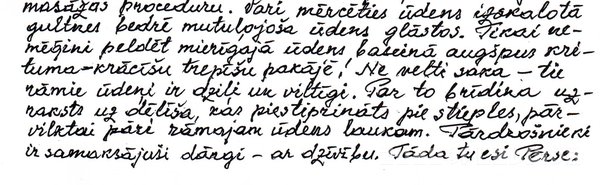 masāžas procedūru. Vari mērcēties ūdens izskalotā
gultnes bedrē mutuļojoša ūdens glāstos. Tikai ne-
mēģini peldēt mierīgajā ūdens baseinā augšpus kri-
tuma-krācīšu trepīšu pakājē! Ne velti saka – tie
rāmie ūdeņi ir dziļi un viltīgi. Par to brīdina uz-
raksts uz dēlīša, kas piestiprināts pie stieples, pār-
vilktai pāri rāmajam ūdens laukam. Pārdrošnieki
ir samaksājuši dārgi – ar dzīvību. Tāda tu esi Pērse: